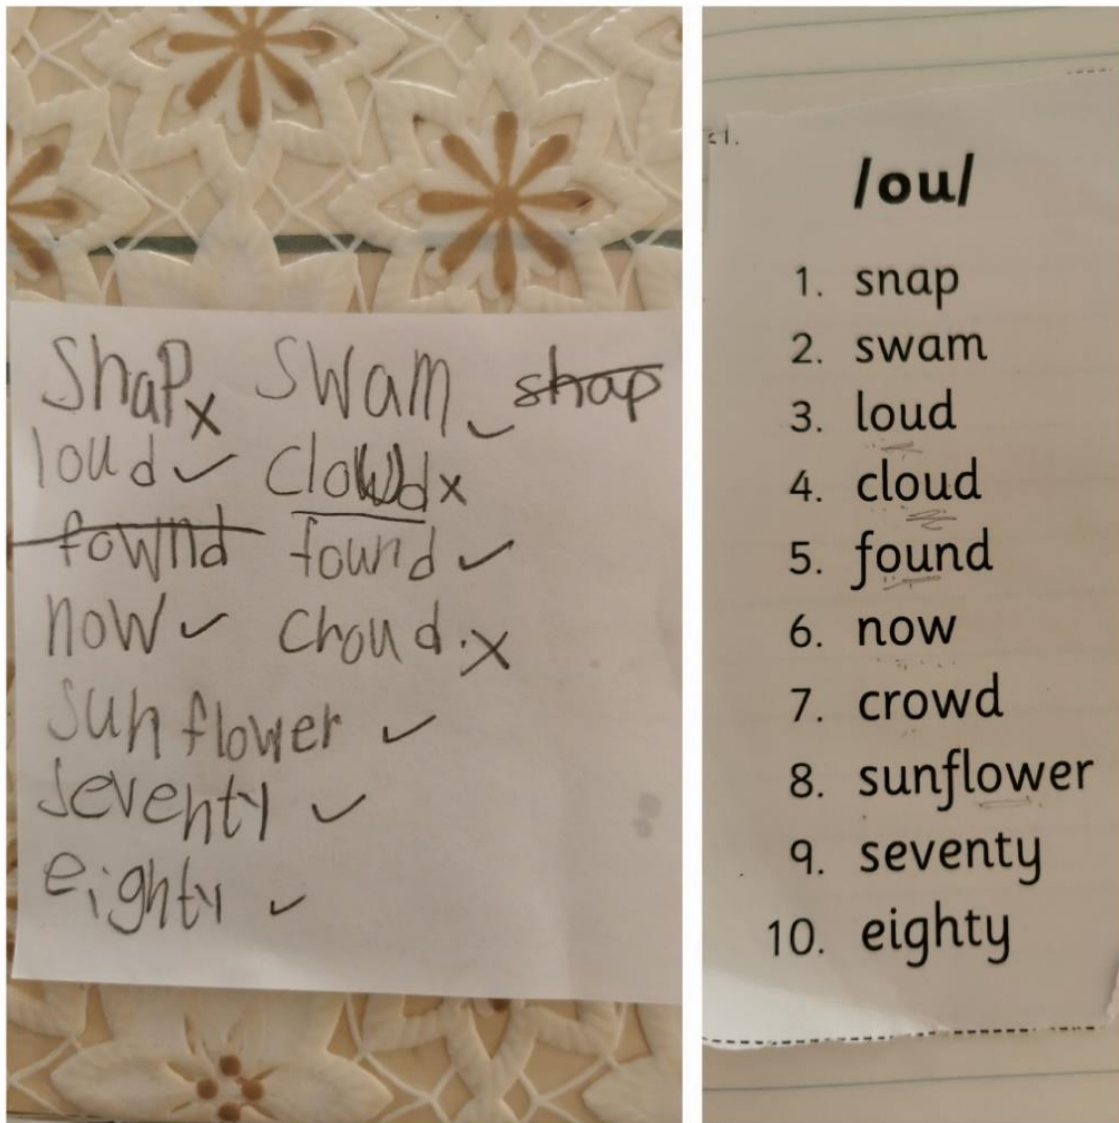 ShaP x Swam ✓ shap
loud ✓ clowd x
fownd found ✓
now ✓ choud . x
sunflower ✓
seventy ✓
eighty ✓
/ou/
1. snap
2. swam
3. loud
4. cloud
5. found
6. now
7. crowd
8. sunflower
9. seventy
10. eighty